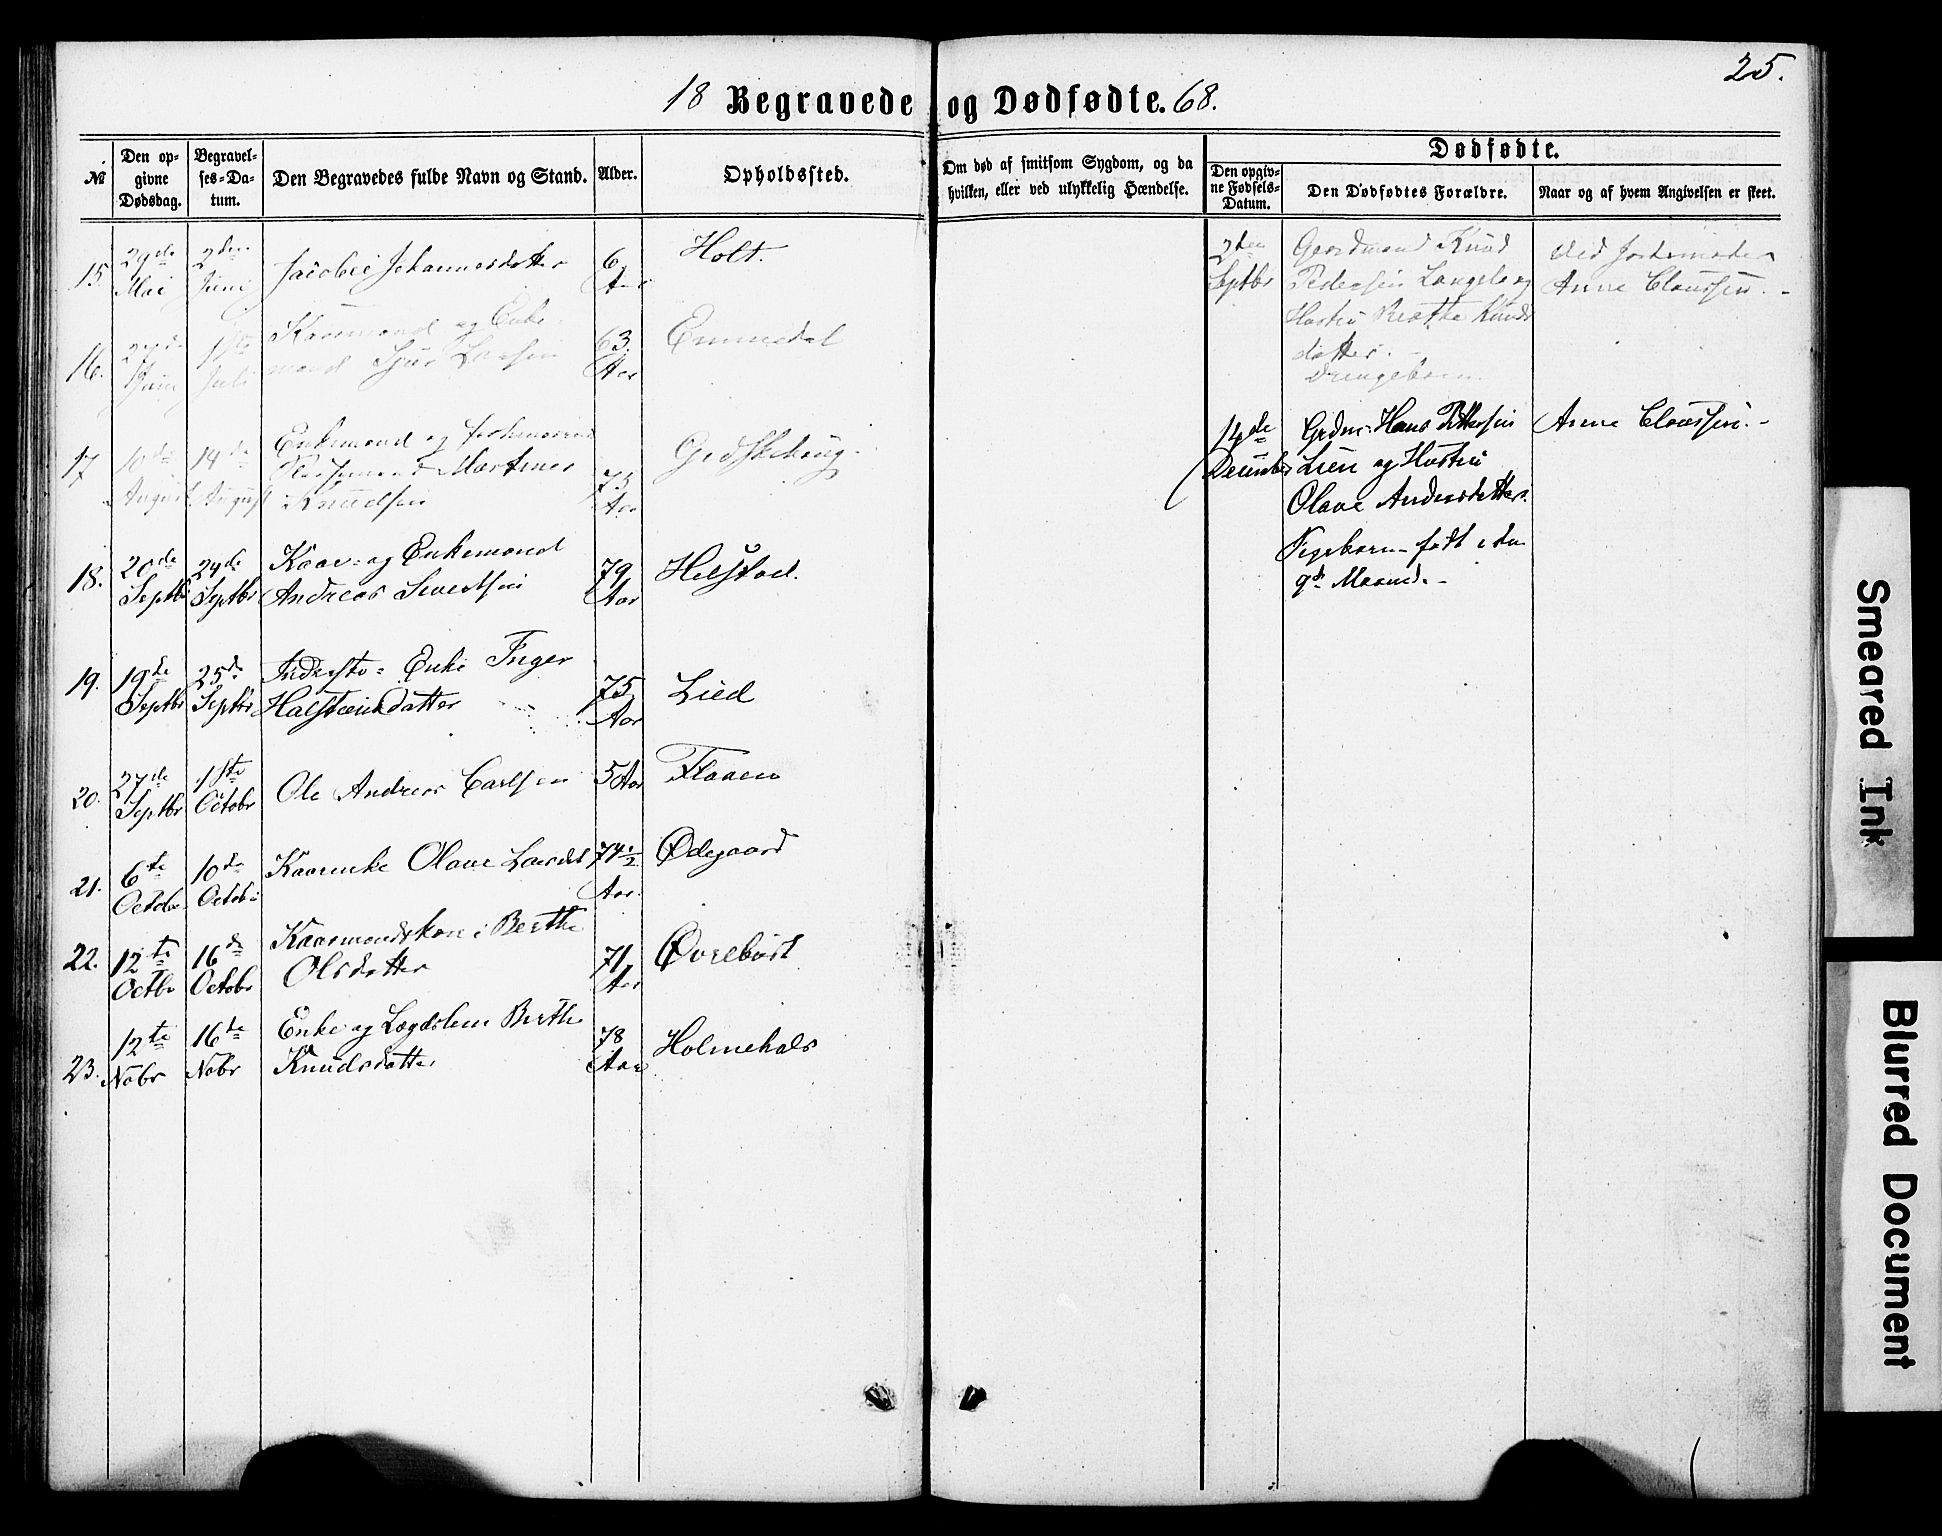 25.
18 Begravede og Dødfødte. 68.
№
Den op-
givne
Dødsdag.
Begravel-
ses-Da-
tum.
Den Begravedes fulde Navn og Stand.
Alder.
Opholdssted.
Om død af smitsom Sygdom, og da
hvilken, eller ved ulykkelig Hændelse.
Dødfødte.
Den opgiv-
ne Fødsels-
Datum.
Den Dødfødtes Forældre.
Naar og af hvem Angivelsen er skeet.
15.
29de
Mai
2den
Juni
Jacobe Johannesdatter
6
Aar
Holt.
16.
27de
Juni
1ste
Juli
Kaarmand og Enke-
mand
63.
Aar
17
10de
August
14de
August
Enkemand og
Martinus
Knudsen
75
Aar
18.
20de
Septbr
24de
Septbr
Kaar- og Enkemand
Andreas Sivertsen
79
Aar
Helstad.
19.
19de
Septbr
25de
Septbr
Inderste- Enke Inger
Halsteinsdatter
75
Aar
Lied
20.
27de
Septbr
1ste
Octobr
Ole Andreas Carlsen
5 Aar
Flaaen
21.
6te
Octobr
10de
Octobr
Kaarenke Olave Larsdt
74 1/2
Aar.
Ødegaard
22.
12te
Octbr
16de
Octobr
Kaarmandskone Berthe
Olsdatter
71
Aar
Øvrebust
23.
12te
Nobr
16de
Nobr
Enke og Lægdslem Berthe
Knudsdatter
78
Aar
Holmehals
2den
Septbr
Gaardmand Knud
Pedersen og
Hustru Knuds
datter.
Drengebarn.
Ved Jordemoder
Anne Claussen.
14de
December
Grdm. Hans Pettersen
Lien og Hustru
Olave Andersdatter.
Pigebarn - født i den
9de Maaned.
Anne Claussen.
Smeared Ink
Blurred Document